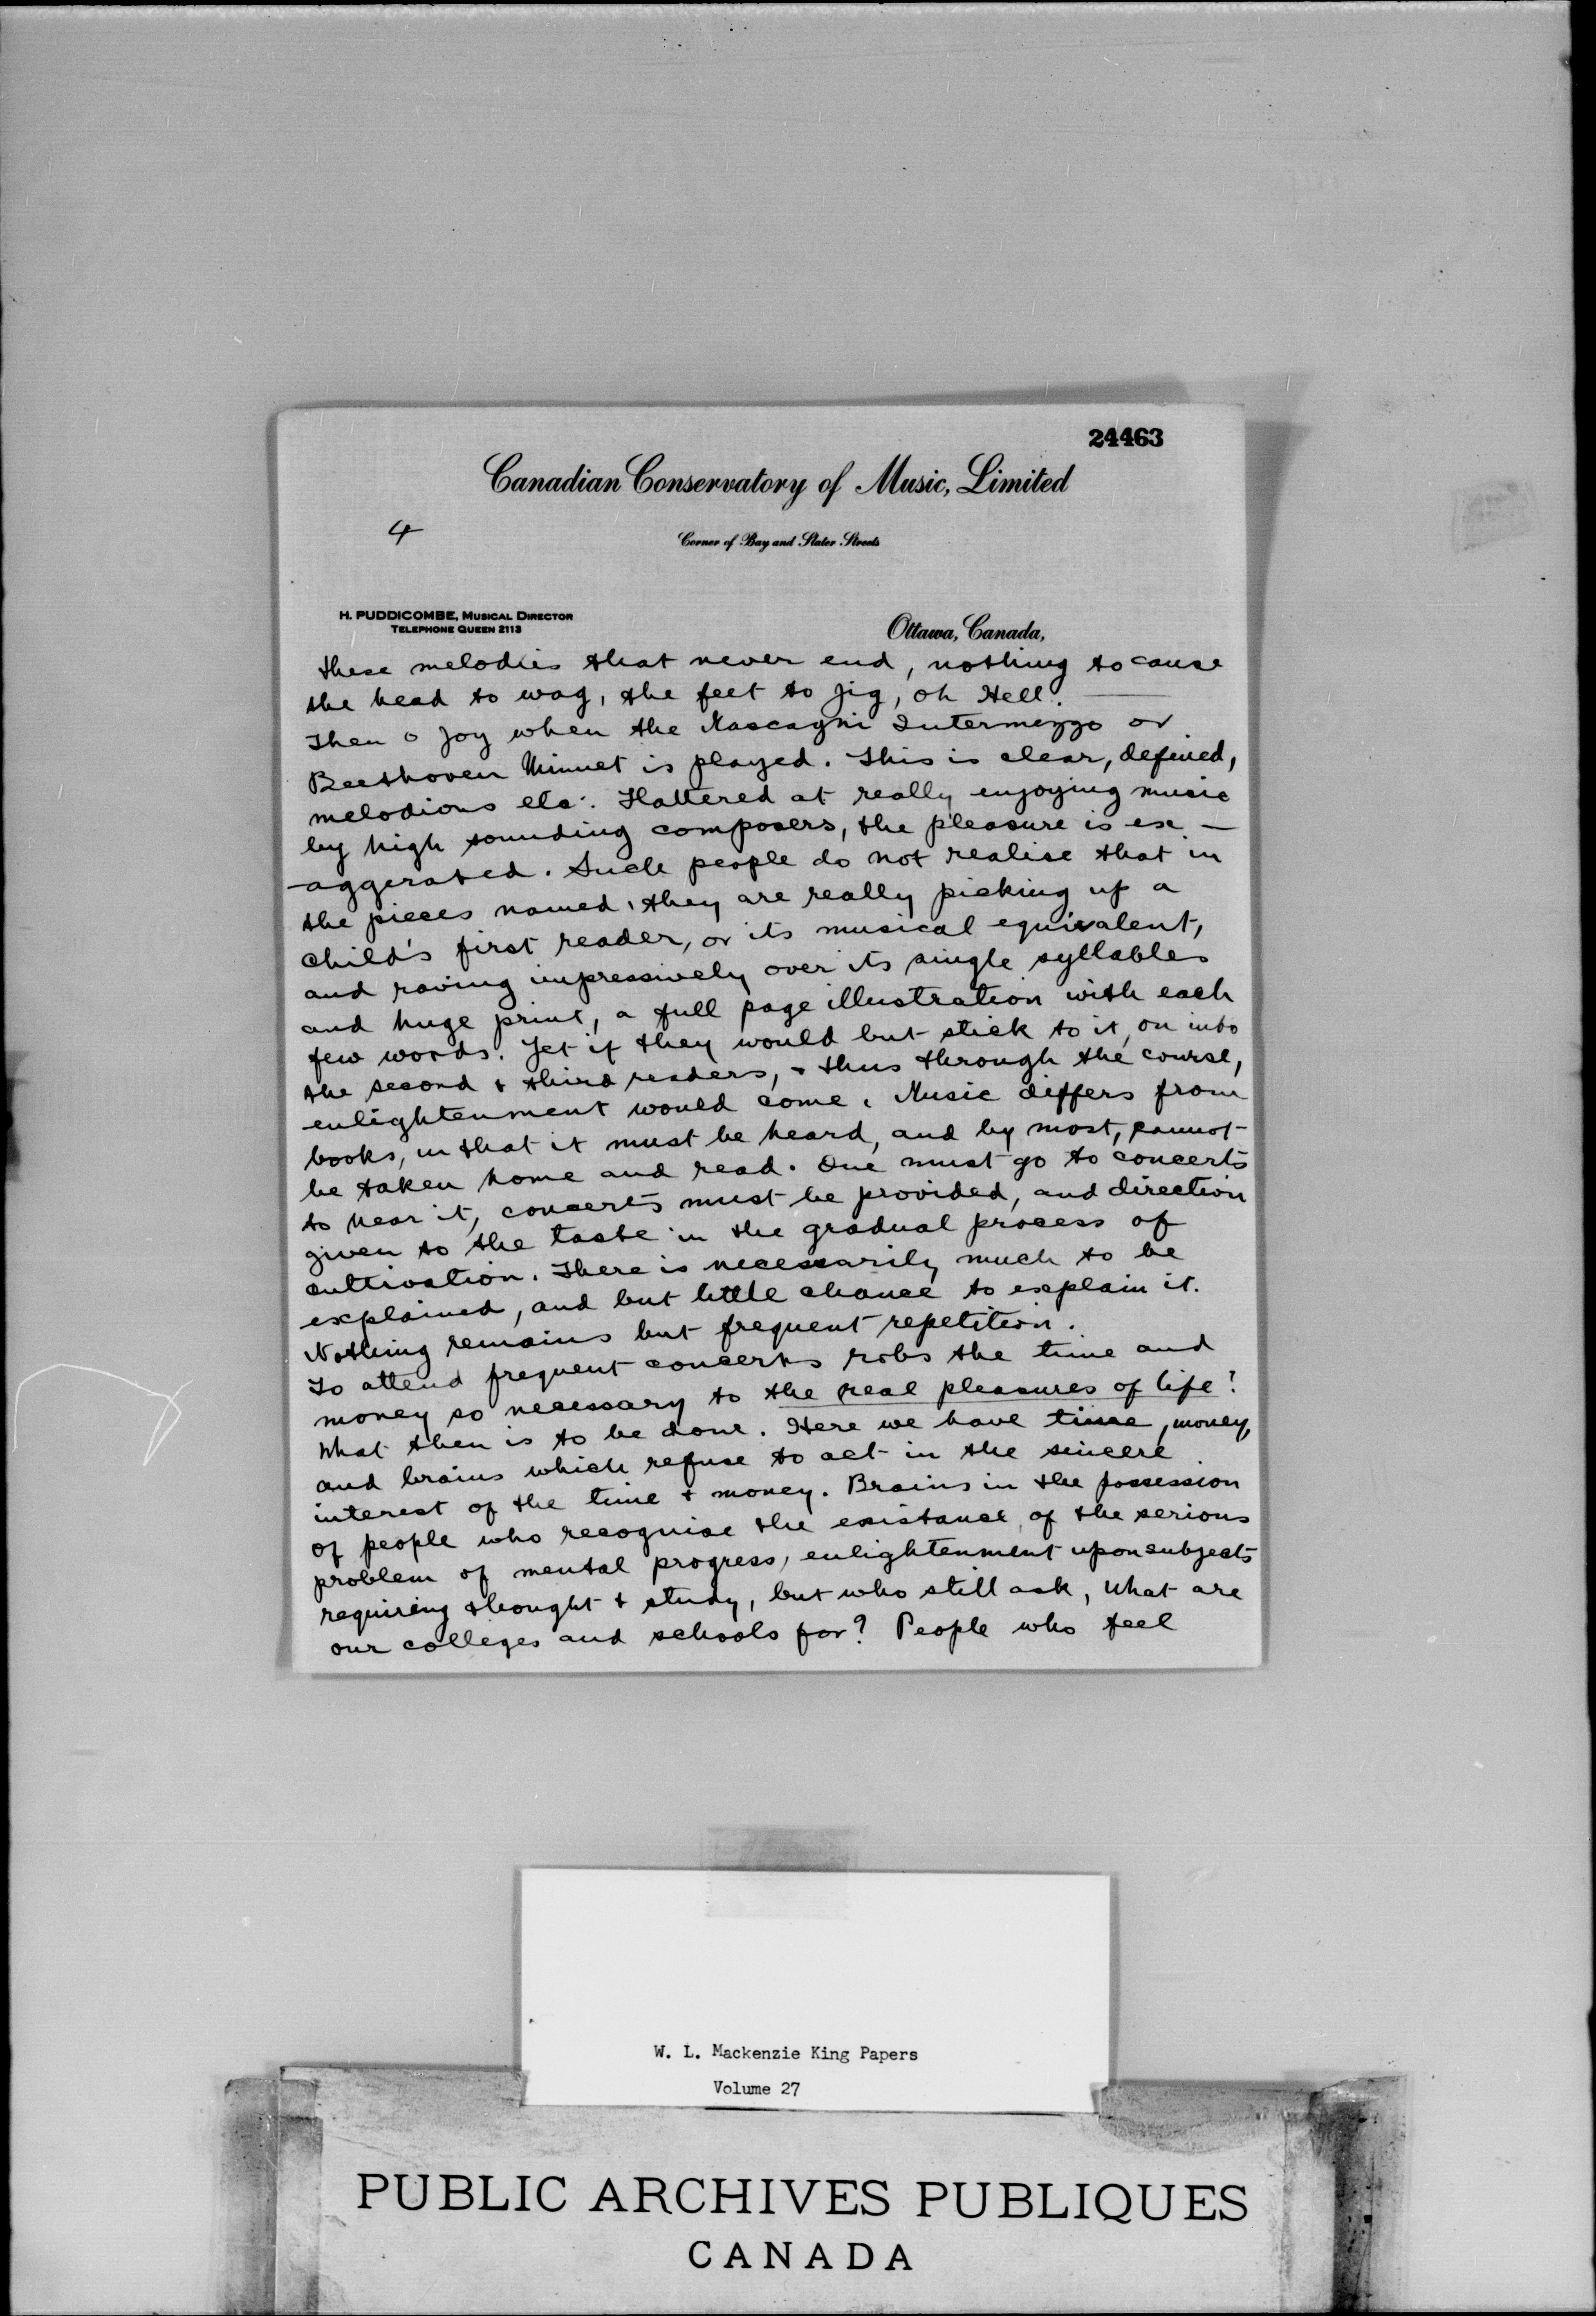 24463
Canadian Conservatory of Music, Limited
4
Corner of Bay and Slater Streets
H. PUDDICOMBE, MUSICAL DIRECTOR
TELEPHONE QUEEN 2113
Ottawa, Canada,
these melodies that never end, nothing to cause
the head to wag, the feet to jig, oh Hell!
Then o joy when the Mascagni Intermezzo or
Beethoven Minuet is played. This is clear, defined,
melodious etc. Flattered at really enjoying music
by high sounding composers, the pleasure is ex-
-aggerated. Such people do not realise that in
the pieces named, they are really picking up a
child's first reader, or its musical equivalent,
and raving impressively over its single syllables
and huge print, a full page illustration with each
few words. Yet if they would but stick to it, on into
the second & third readers, & thus through the course,
enlightenment would come. Music differs from
books, in that it must be heard, and by most, cannot
be taken home and read. One must go to concerts
to hear it, concerts must be provided, and direction
given to the taste in the gradual process of
cultivation. There is necessarily much to be
explained, and but little chance to explain it.
Nothing remains but frequent repetition.
To attend frequent concerts robs the time and
money so necessary to the real pleasures of life?
What then is to be done. Here we have time, money,
and brains which refuse to act in the sincere
interest of the time & money. Brains in the possession
of people who recognise the existance of the serious
problem of mental progress, enlightenment upon subjects
requiring thought & study, but who still ask, What are
our colleges and schools for? People who feel
W. L. Mackenzie King Papers
Volume 27
PUBLIC ARCHIVES PUBLIQUES
CANADA